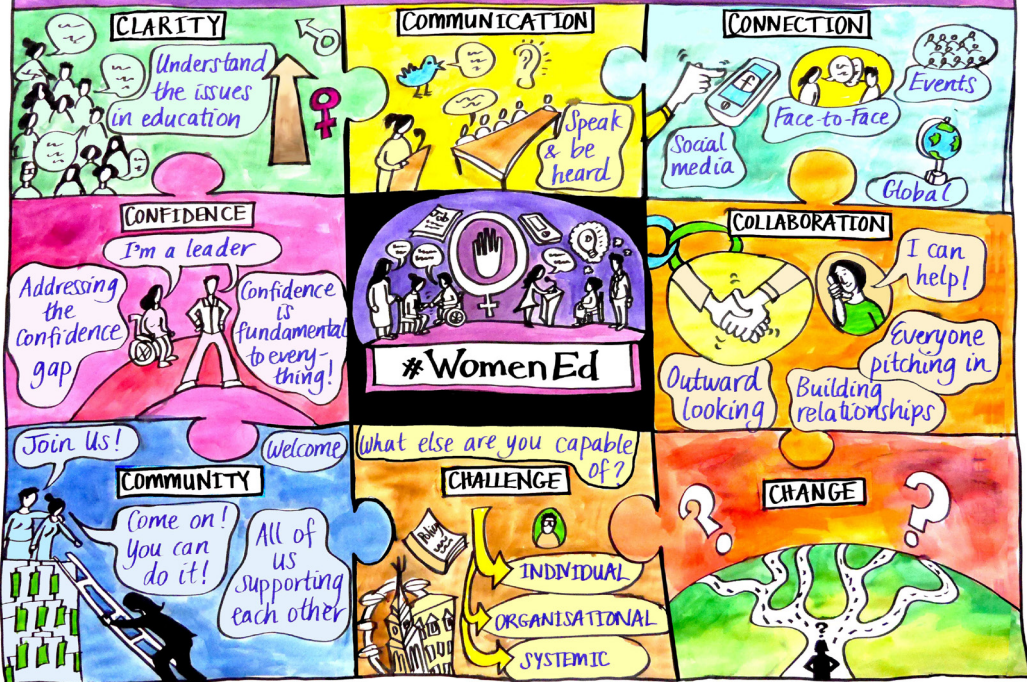 CLARITY
Understand
the issues
in education
COMMUNICATION
Speak
& be
heard
CONNECTION
f
Social
media
Face-to-Face
Events
Global
CONFIDENCE
I'm a leader
Addressing
the
confidence
gap
Confidence
is
fundamental
to every-
thing!
Job
#WomenEd
COLLABORATION
I can
help!
Everyone
pitching in
Outward
looking
Building
relationships
Join Us!
Welcome
COMMUNITY
Come on!
You can
do it!
All of
us
supporting
each other
What else are you capable
of?
CHALLENGE
Policy
INDIVIDUAL
ORGANISATIONAL
SYSTEMIC
CHANGE
?
?
?